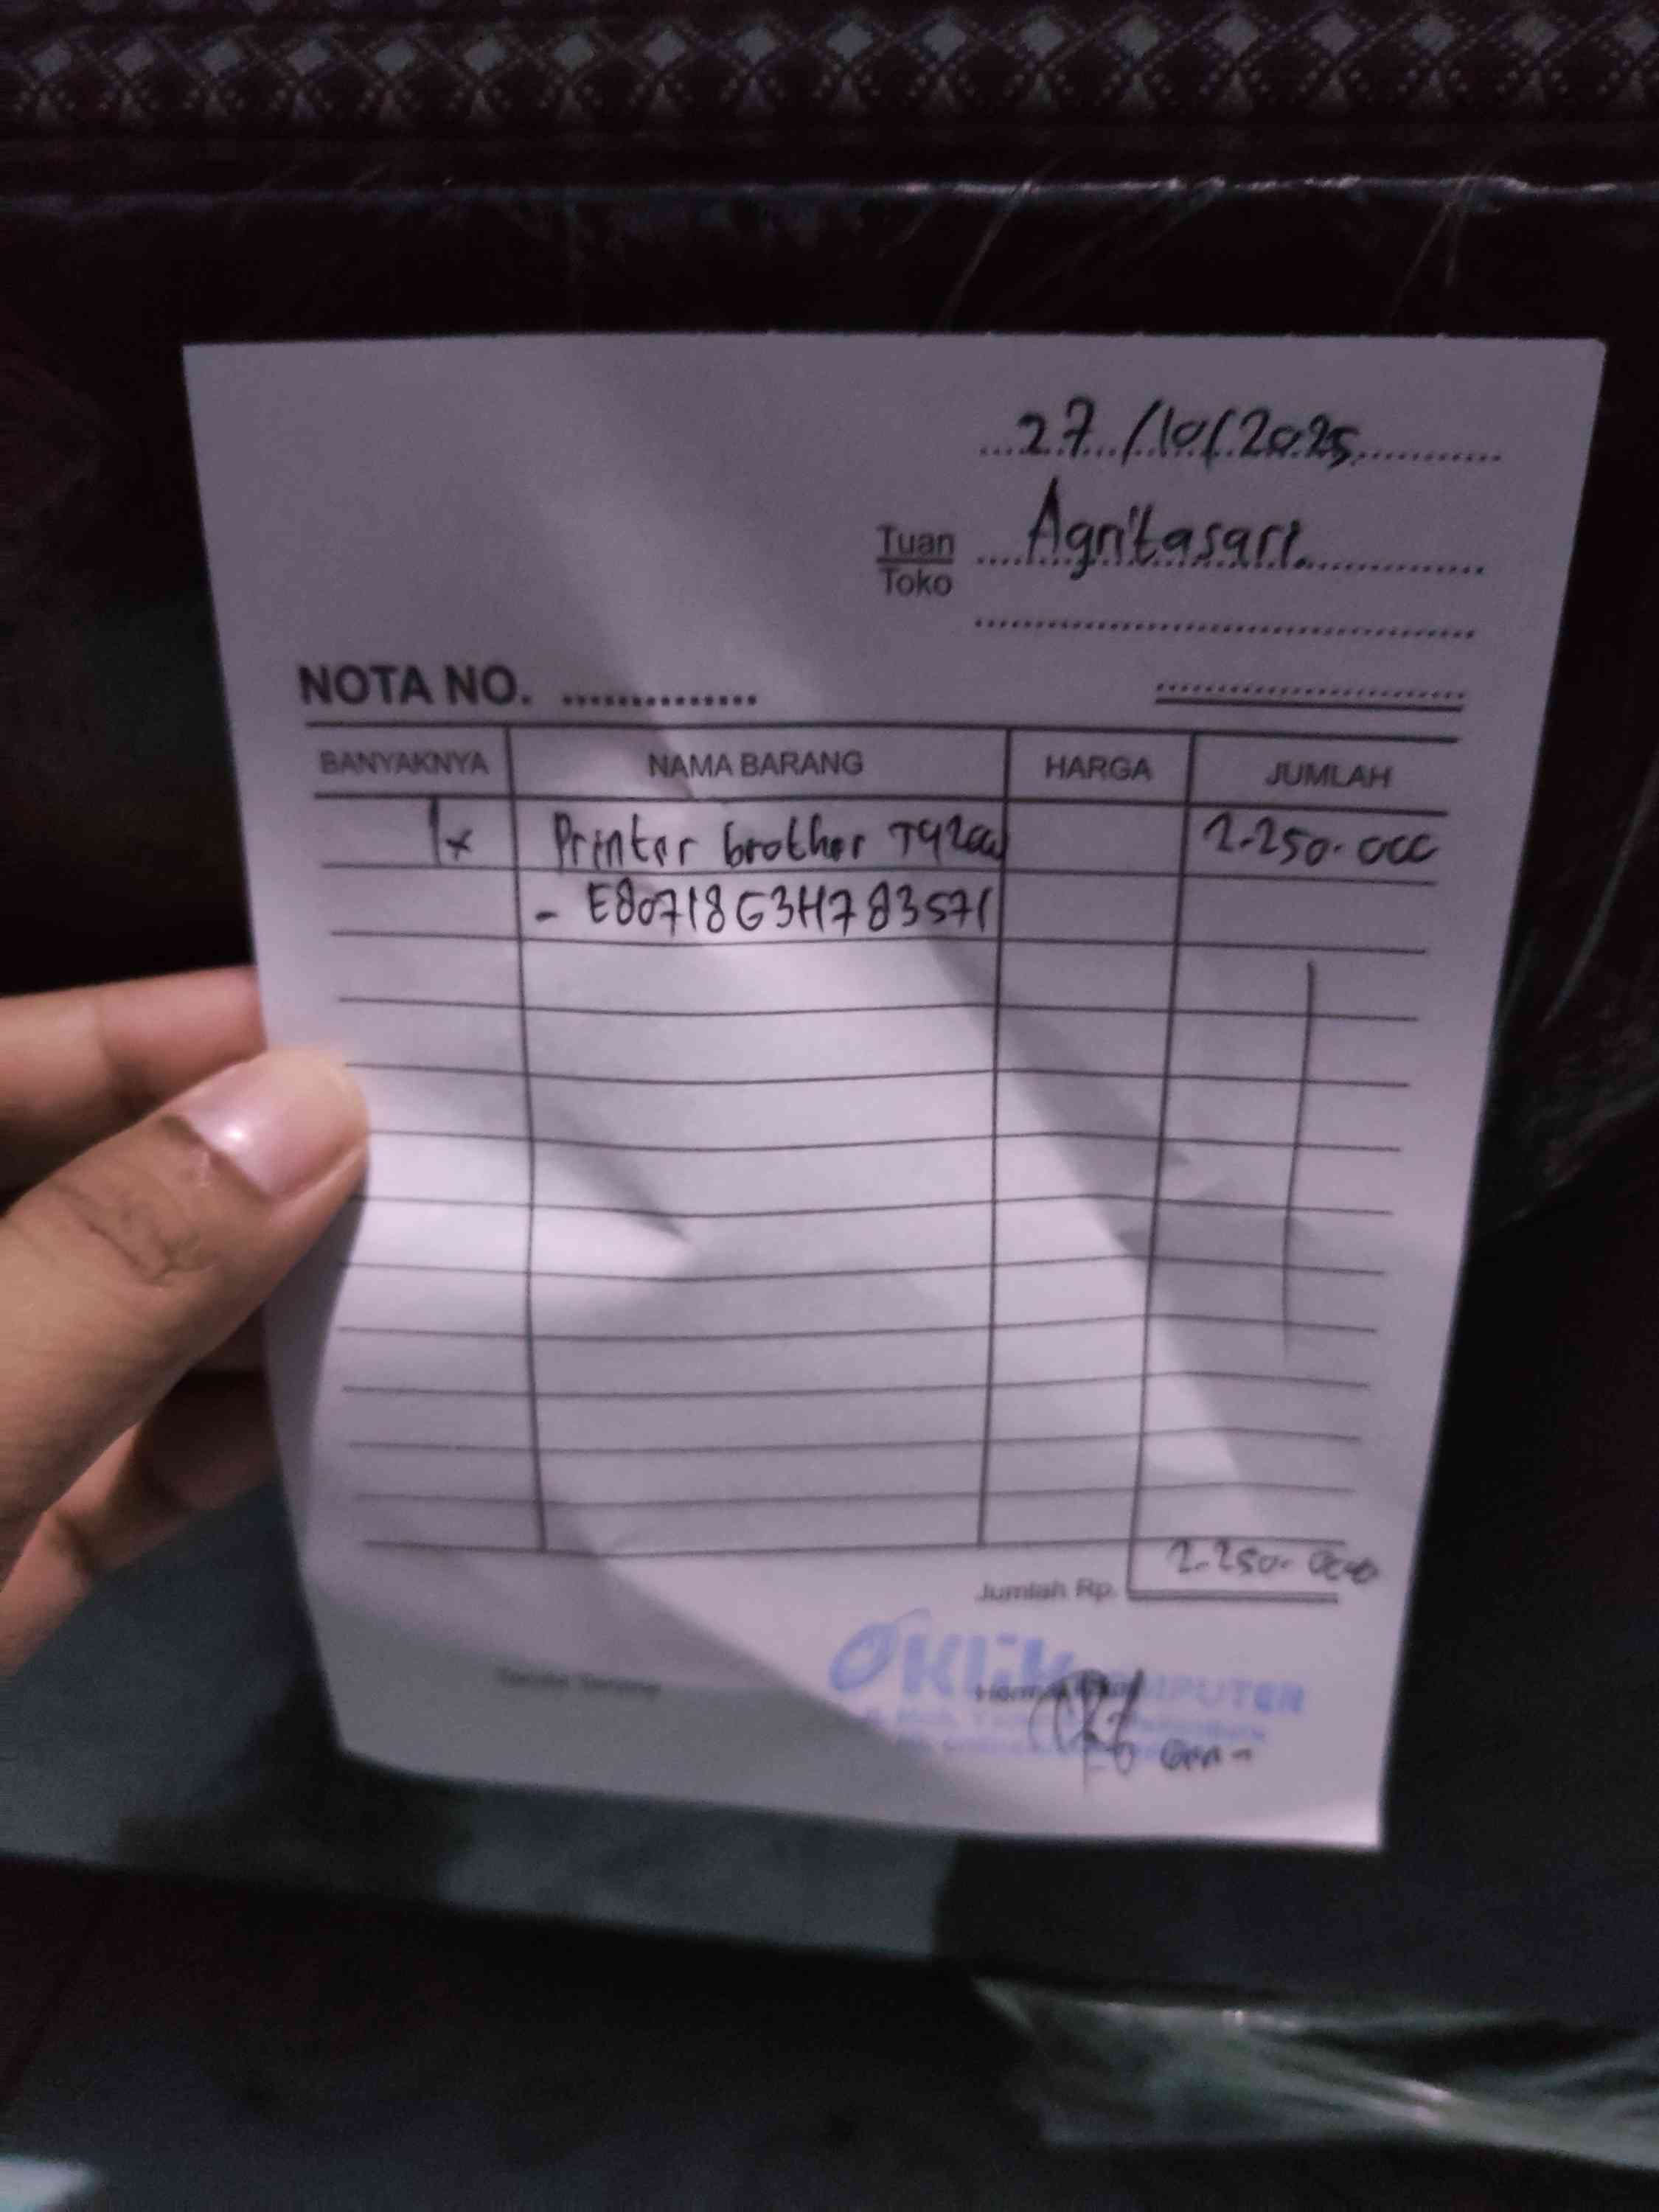 27/10/2025
Tuan Agnitasari.
Toko
NOTA NO.
BANYAKNYA NAMA BARANG HARGA JUMLAH
1x Printer brother T920W 2.250.000
- E80718G3H783571
Jumlah Rp. 2.250.000
Tanda Terima
OKLik KOMPUTER